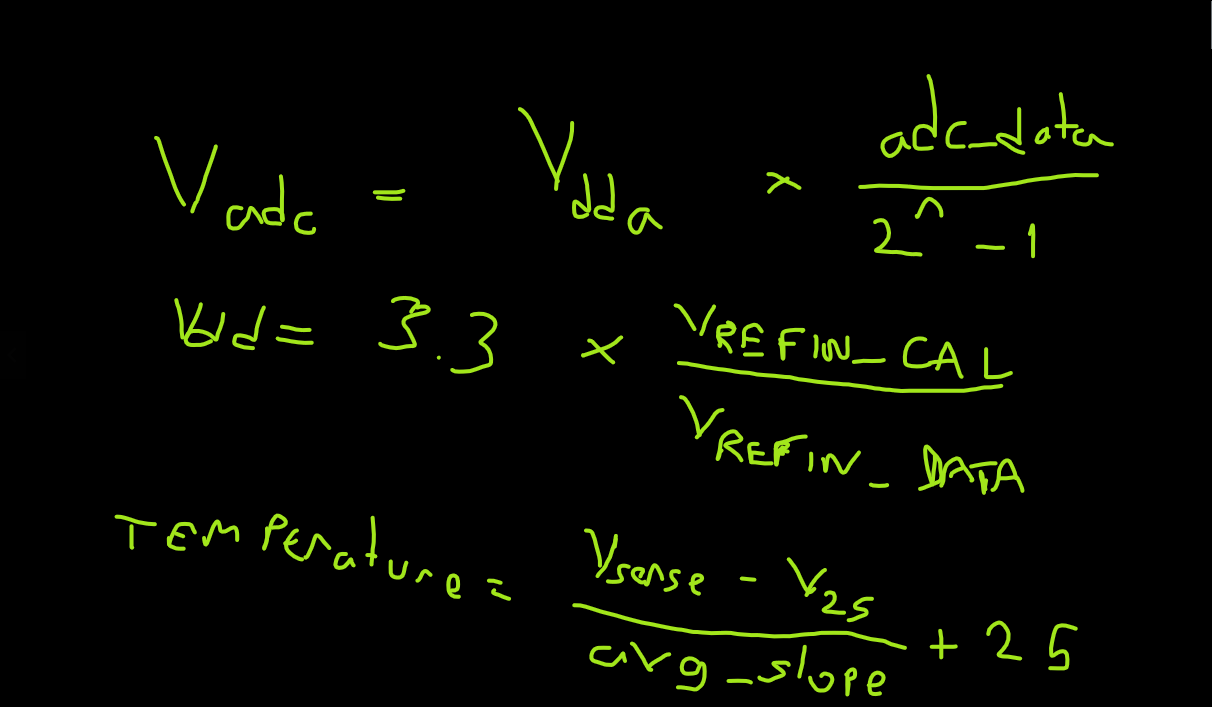 Vadc = Vdda × adc_data / 2^n - 1
Vdd = 3.3 × VREFIN_CAL / VREFIN_DATA
TEMPerature = Vsense - V25 / avg_slope + 25